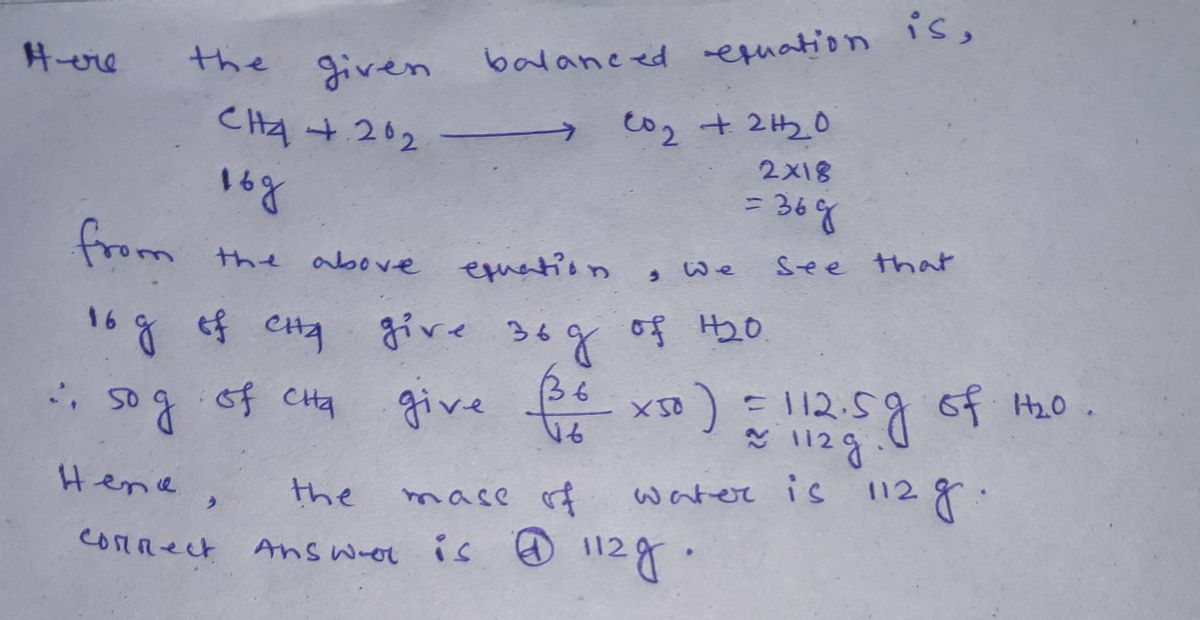 Here the given balanced equation is,
CH4 + 2O2 → CO2 + 2H2O
16g 2×18
= 36g
from the above equation, we see that
16 g of CH4 give 36 g of H2O
∴ 50 g of CH4 give (36/16 ×50) = 112.5g of H2O.
≈ 112g.
Hence, the mass of water is 112 g.
correct Answer is ⓓ 112g.